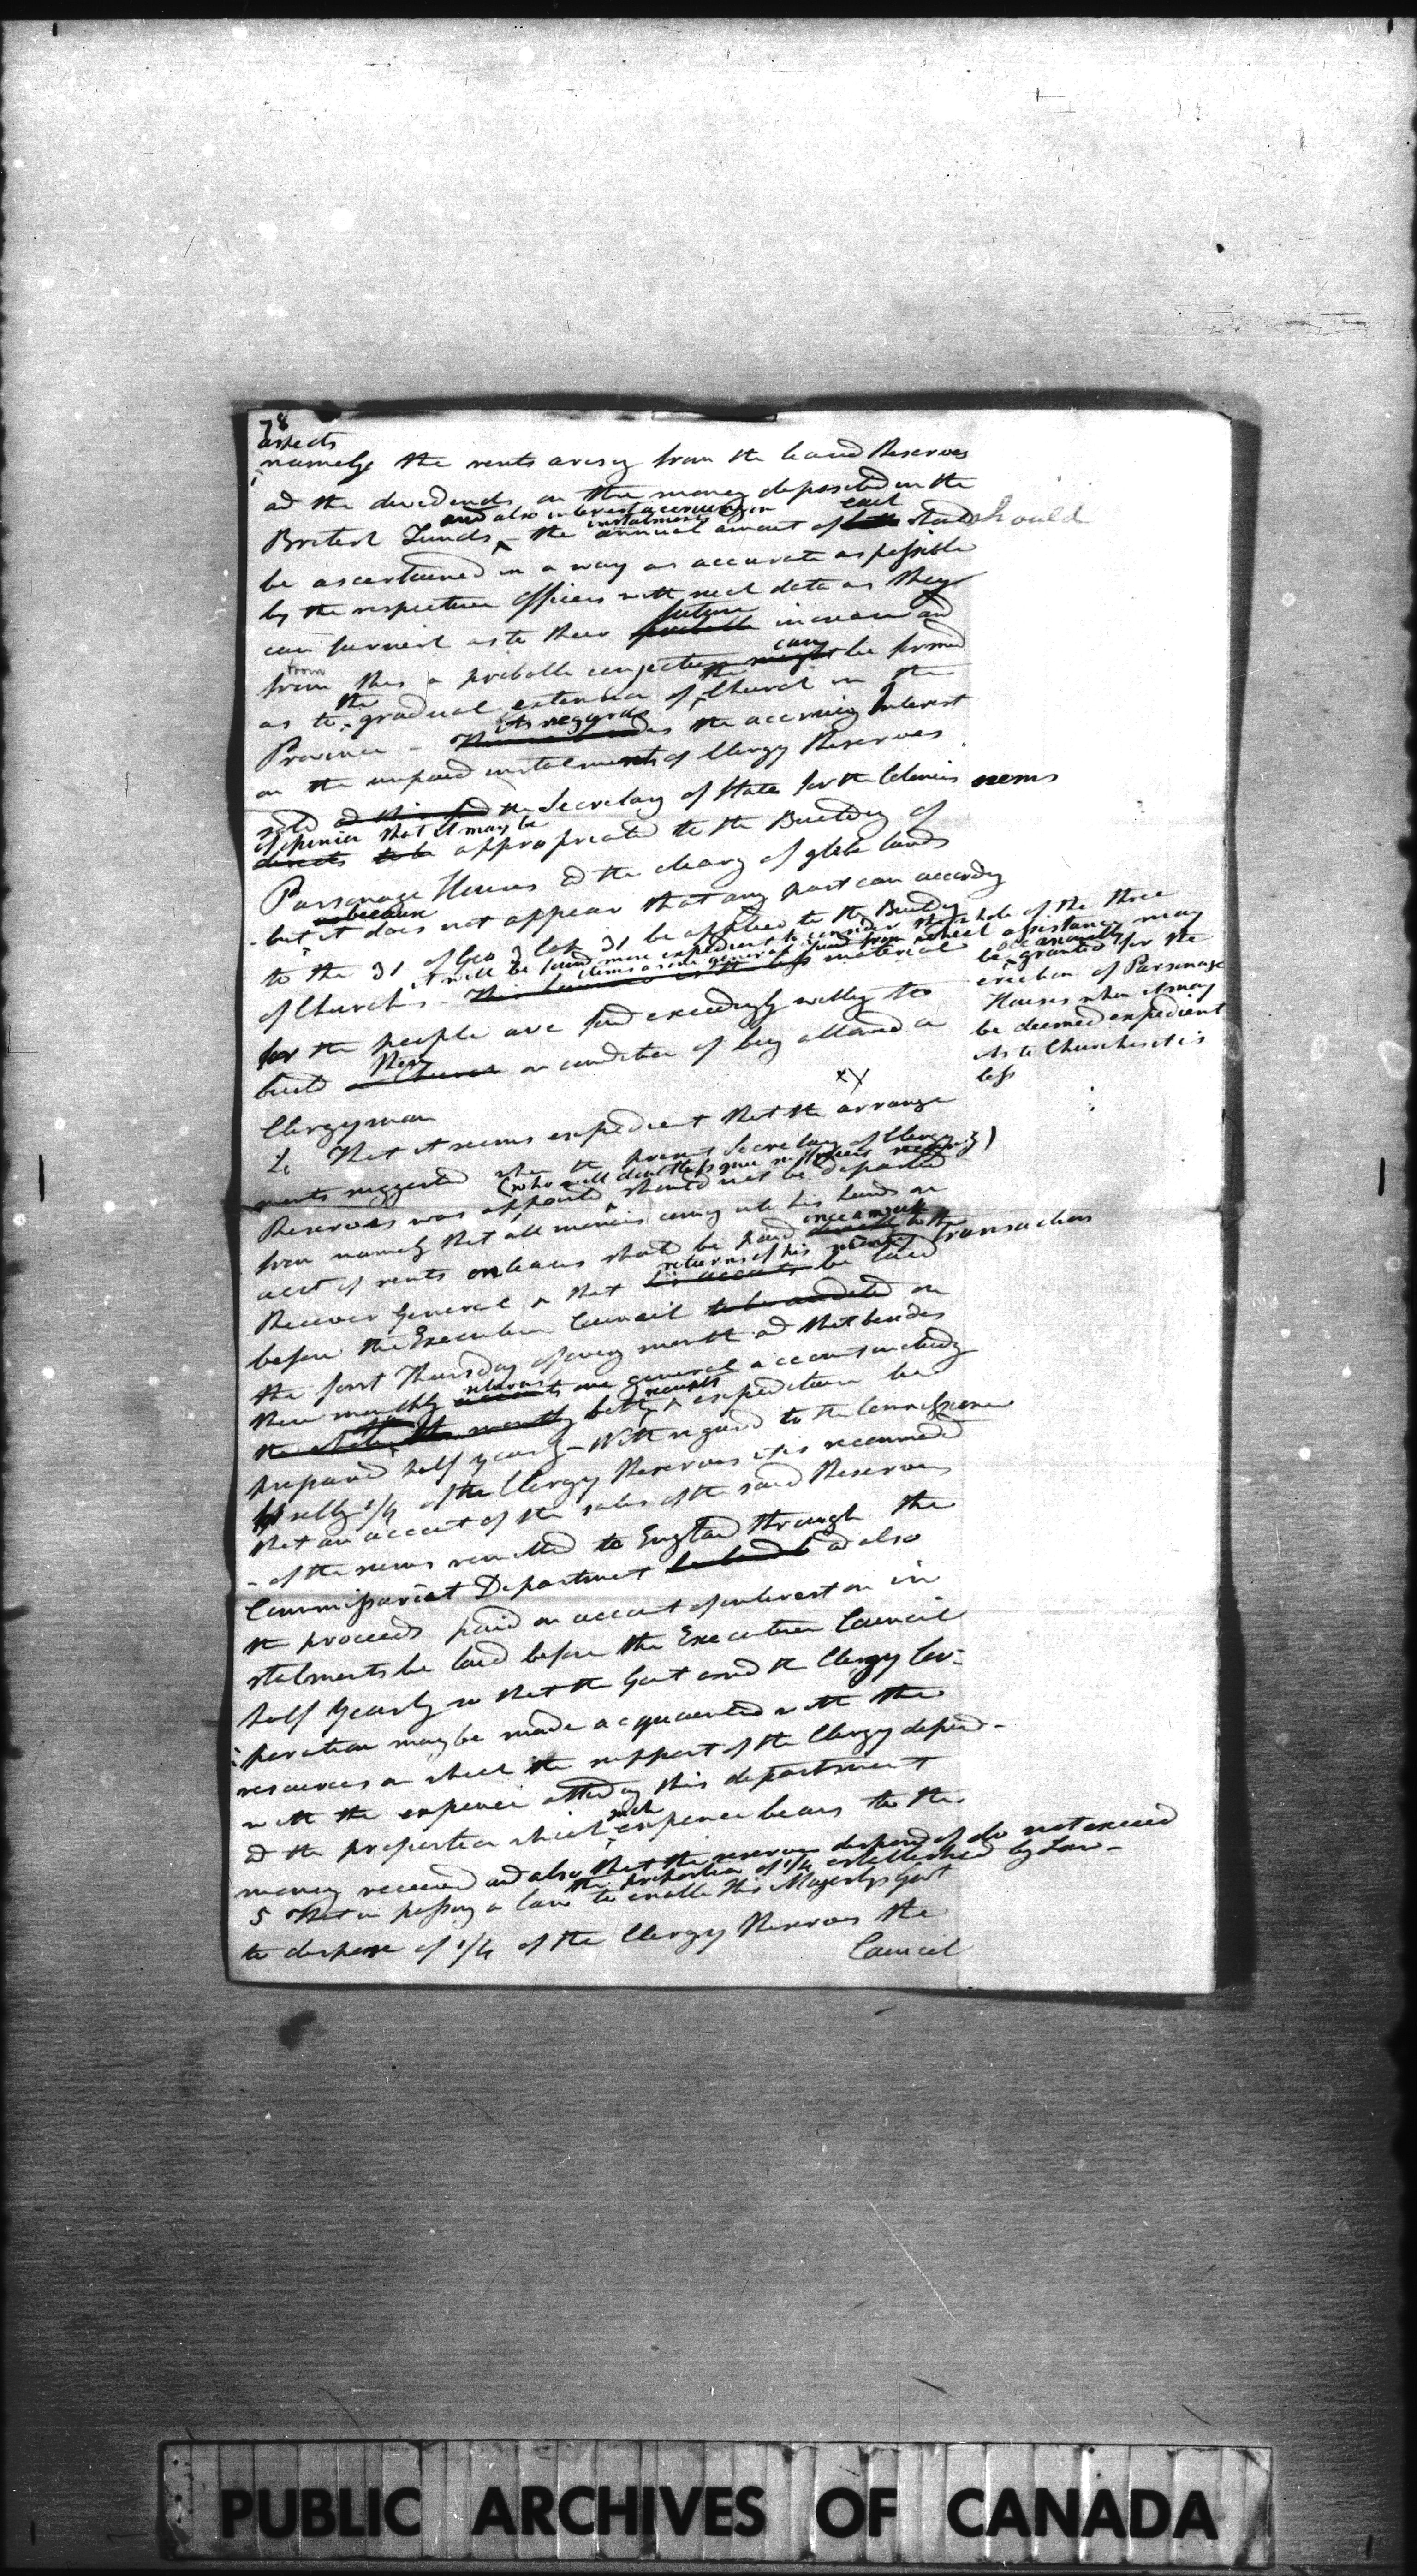 78
assets
namely the rents arising from the leased Reserves
ad the dividends on the money deposited in the
and also interest accruing on
instalments
each
British Funds - the annual amount of should
be ascertained in a way as accurate as possible
by the respective officers with such data as they
future
can furnish as to their probable increase and
from
can
from this a probable conjecture might be formed
the
the
as to gradual extension of Church in the
As regards
Province - the accruing Interest
on the unpaid instalments of Clergy Reserves
sold the Secretary of State for the Colonies seems
of opinion that it may be
directs to be appropriated to the Building of
Parsonage Houses ad the clearg of glebe lands
because
- but it does not appear that any part can accordg
to the 31 of Geo 3 Cap 31 be applied to the Buildg
it will be found more expedient to consider the whole of the three
items as one general fund from which assistance may
of Churches - This however is the less material
be occasionally granted for the
erection of Parsonage
Houses when it may
be deemed expedient
As to Churches it is
less
for the people are found exceedingly willing to
them
build a Church on condition of beg allowed a
Clergyman
xy
That it seems expedient that the arrange
ments suggested when the present Secretary of Clergy
(who will doubtless give securities)
Reserves was appointed should not be departed
from namely that all monies comg into his hands on
once a month
acct of rents on leases should be paid directly to the
returns of his transactions
Receiver General & that his accounts be laid
before the Executive Council to be audited on
the first Thursday of every month ad that besides
returns
these monthly accounts one general account includg
receipts
the whole both & expenditure be
prepared half yearly - With regard to the Commissioner
for sellg 1/4 of the Clergy Reserves it is recommed
that an account of the sales of the said Reserves
- of the sums remitted to England through the
Commissariat Department ad also
the proceeds paid on account of interest on in
stalments be laid before the Executive Council
half yearly so that the Govt and the Clergy Cor-
poration may be made acquainted with the
resources on which the support of the Clergy depend-
with the expence attendg this department
such
ad the proportion which expence bears to the
money received and also that the reserves disposed of do not exceed
the proportion of 1/4 established by Law-
5 That in passing a law to enable His Majestys Govt
to dispose of 1/4 of the Clergy Reserves the
Council
PUBLIC ARCHIVES OF CANADA